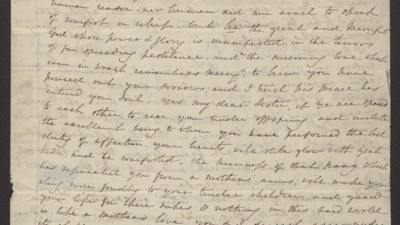 human reason - nor human aid are avail to speak
of comfort or relief. but the great and Merciful
God whose power & glory is manifested in the terrors
of far spreading pestilence and the mourning
even in wrath remembers mercy, to him you have
poured out your sorrows, and I trust his peace has
entered your Soul. Yes my dear Sister, if Ye are spared
to each other, to rear your tender offspring, and imitate
the excellent being to whom you have performed the last
duty of affection, your hearts will still glow with
and be comforted. the of that pang which
has separated you from a mothers arms, will make you
cling more fondly to your tender children and guard
your life for their sakes. O nothing in this hard world
is like a mothers love